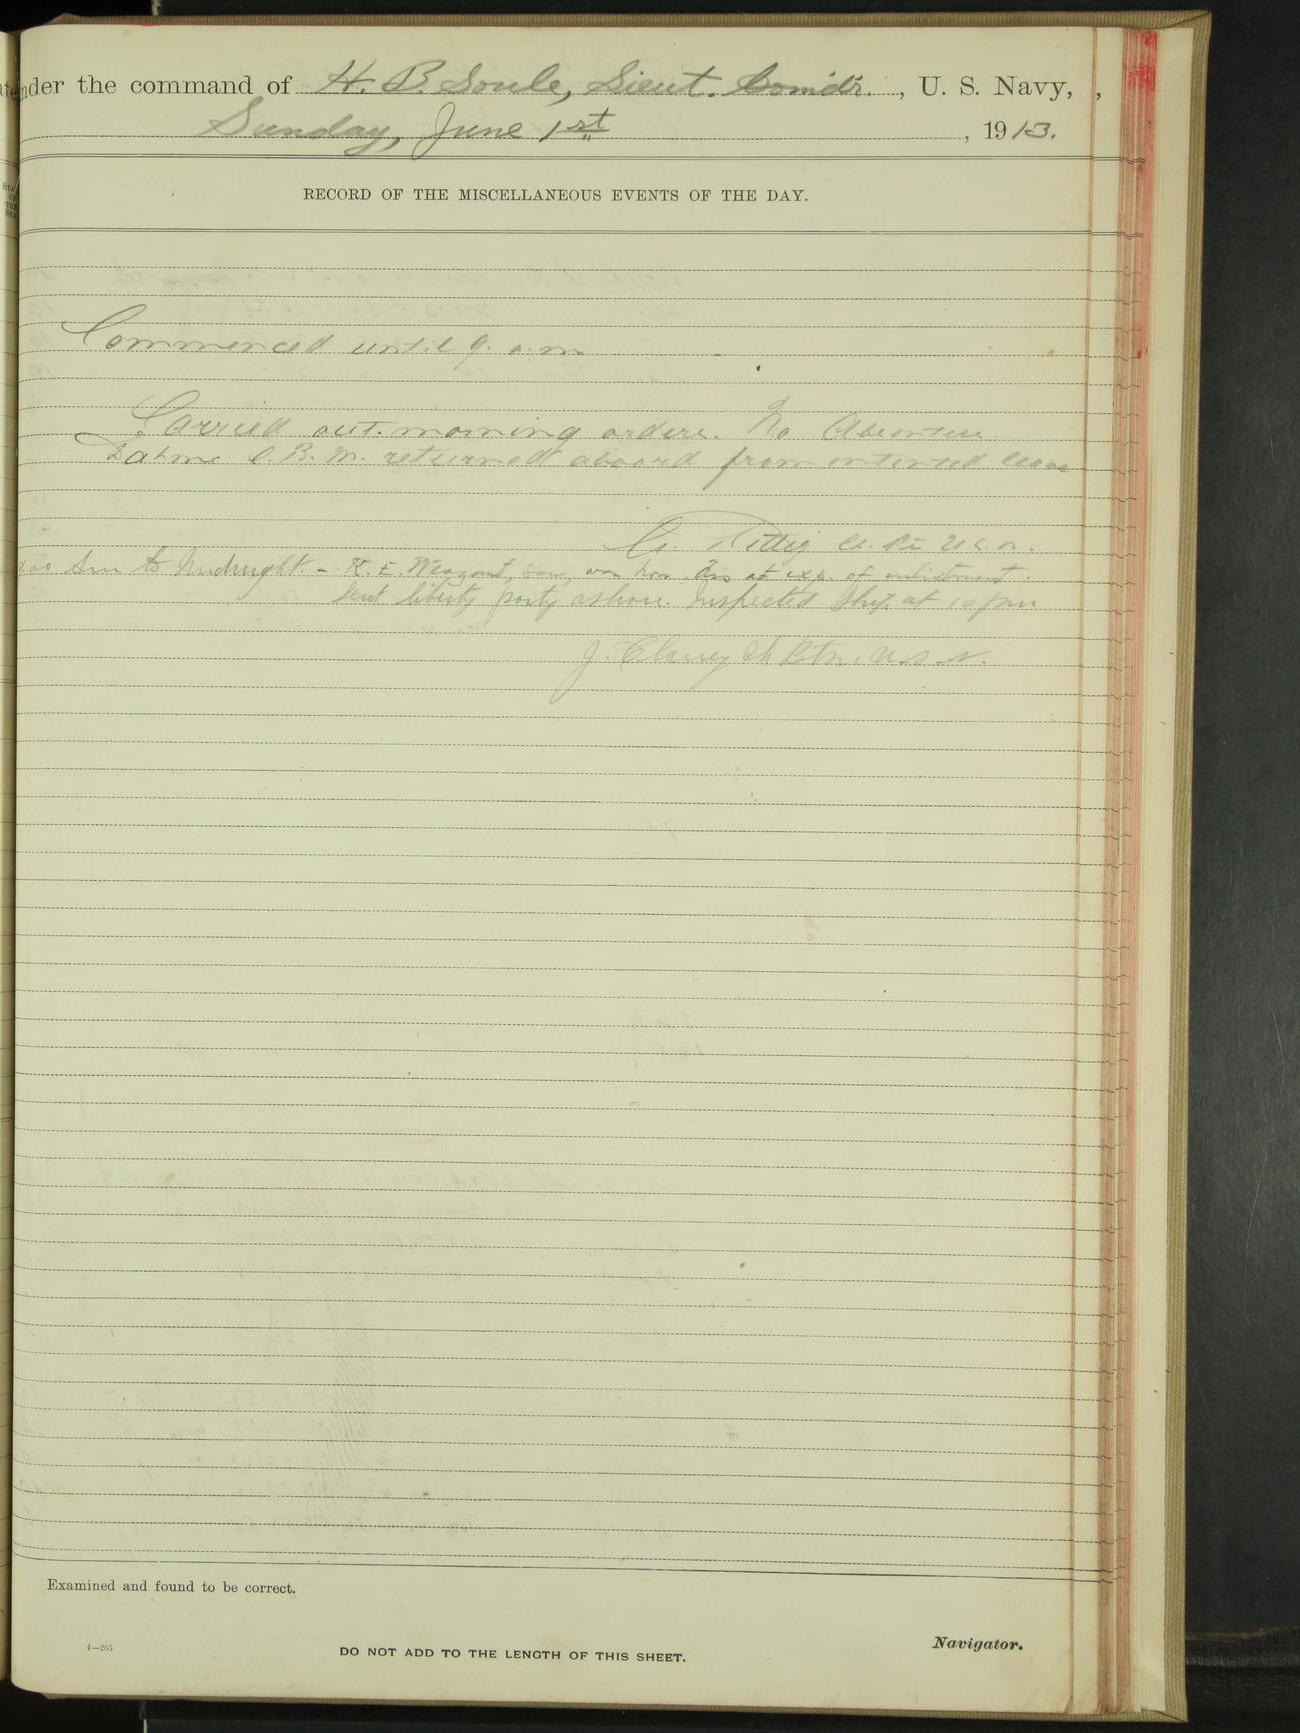 under the command of H. B. Soule, Lieut. Comdr. , U. S. Navy, ,
Sunday, June 1st , 1913.
RECORD OF THE MISCELLANEOUS EVENTS OF THE DAY.
Commenced until 9. a.m
Carried out morning orders. No Absentees
C. B. M. returned aboard from leave
to Midnight. - K. E. was hon. dis at exp. of enlistment.
Sent liberty party ashore. Inspected Ship at 10 pm
J. Clancy Ch Btn. U.S.N.
Examined and found to be correct.
4—265
DO NOT ADD TO THE LENGTH OF THIS SHEET.
Navigator.